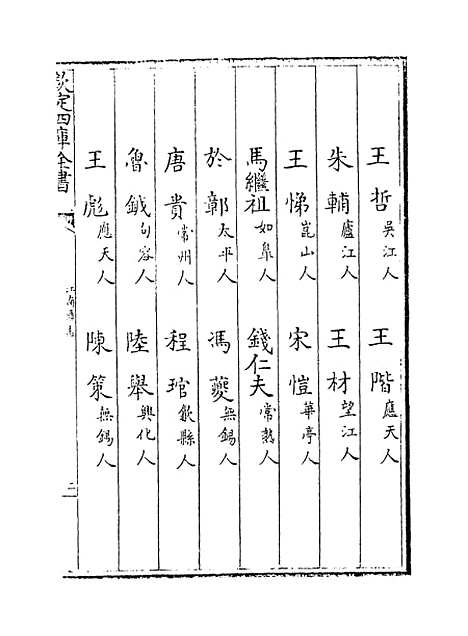 王哲吳江人 王階應天人
朱輔廬江人 王材望江人
王悌崑山人 宋愷華亭人
馬繼祖如臯人 錢仁夫常熟人
於鄣太平人 馮夔無錫人
唐貴常州人 程琯歙縣人
魯鉞句容人 陸舉興化人
王彪應天人 陳策無錫人
欽定四庫全書
江南通志
二